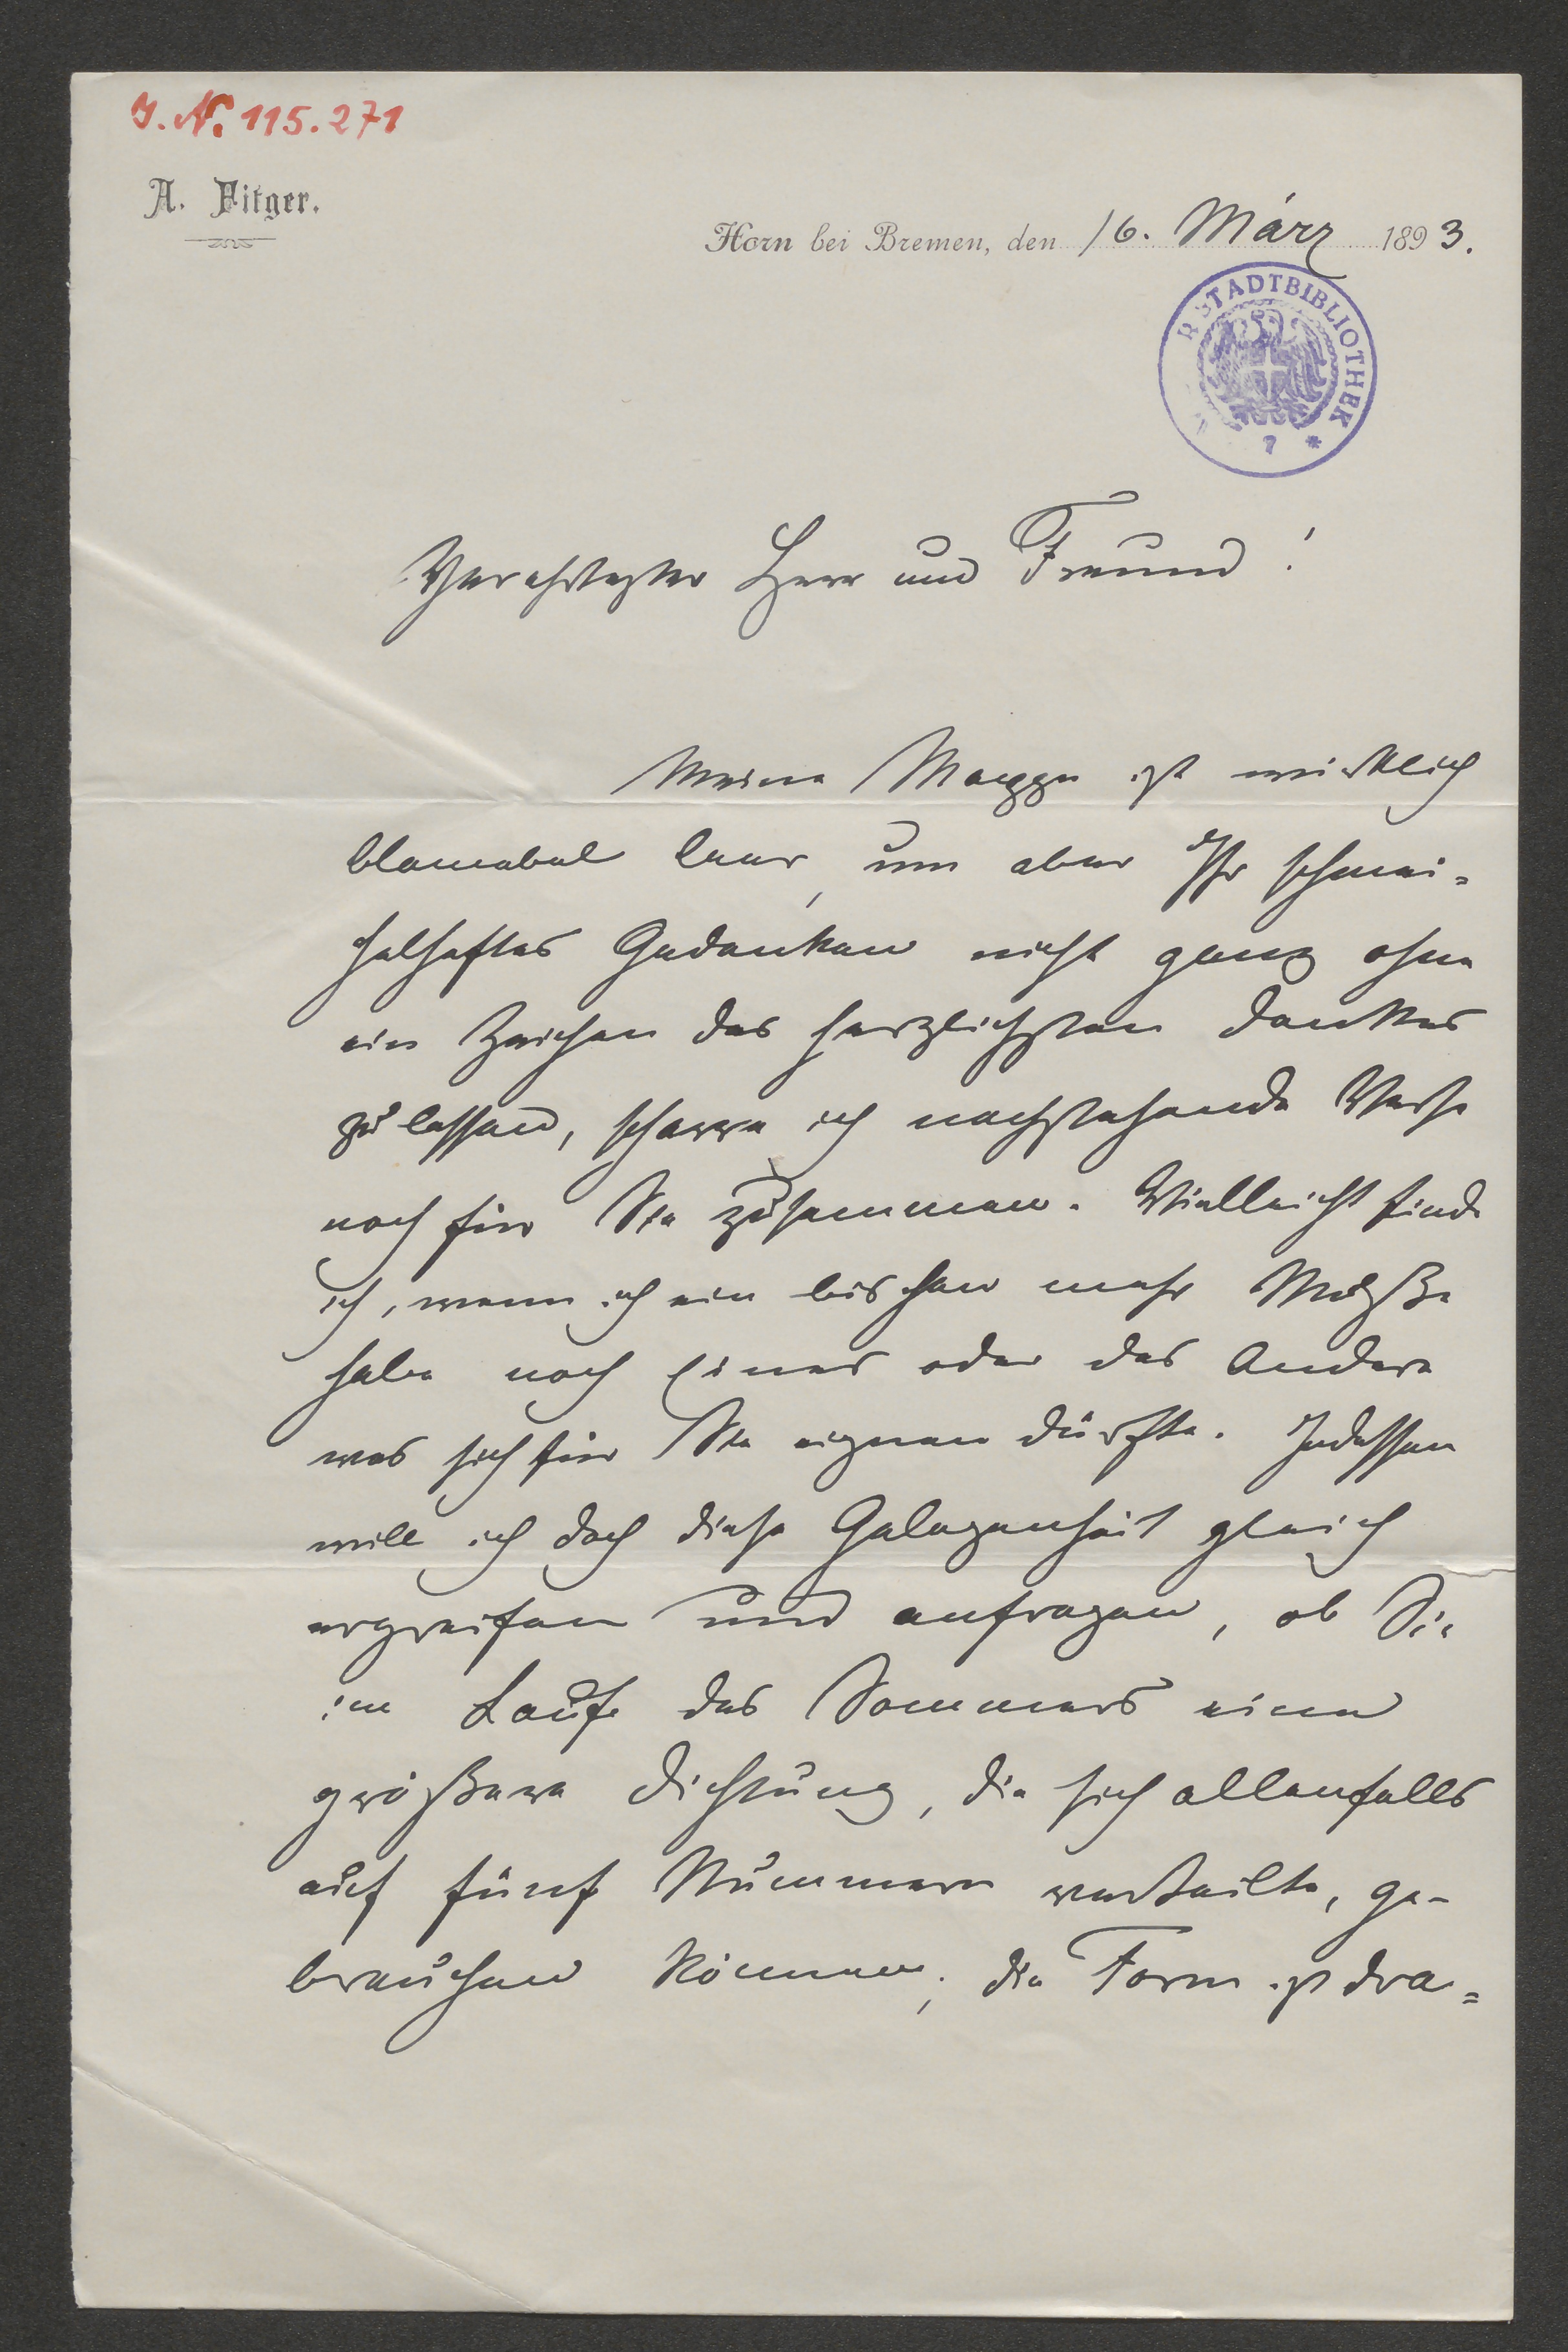 I. N. 115.271
A. Fitger.
Horn bei Bremen, den 16. März 1893.
STADTBIBLIOTHEK
Verehrtester Herr und Freund!
Meine Mappe ist wirklich
blamabel leer, um aber Ihr schmei=
chelhaftes Gedenken nicht ganz ohne
ein Zeichen des herzlichsten Dankes
zu lassen, scharre ich nachstehende Verse
noch für Sie zusammen. Vielleicht finde
ich, wenn ich ein bischen mehr Muße
habe noch Eines oder das Andere
was sich für Sie eignen dürfte. Indessen
will ich doch diese Gelegenheit gleich
ergreifen und anfragen, ob Sie
im Laufe des Sommers eine
größere Dichtung, die sich allenfalls
auf fünf Nummern verteilte, ge-
brauchen können; die Form ist dra=